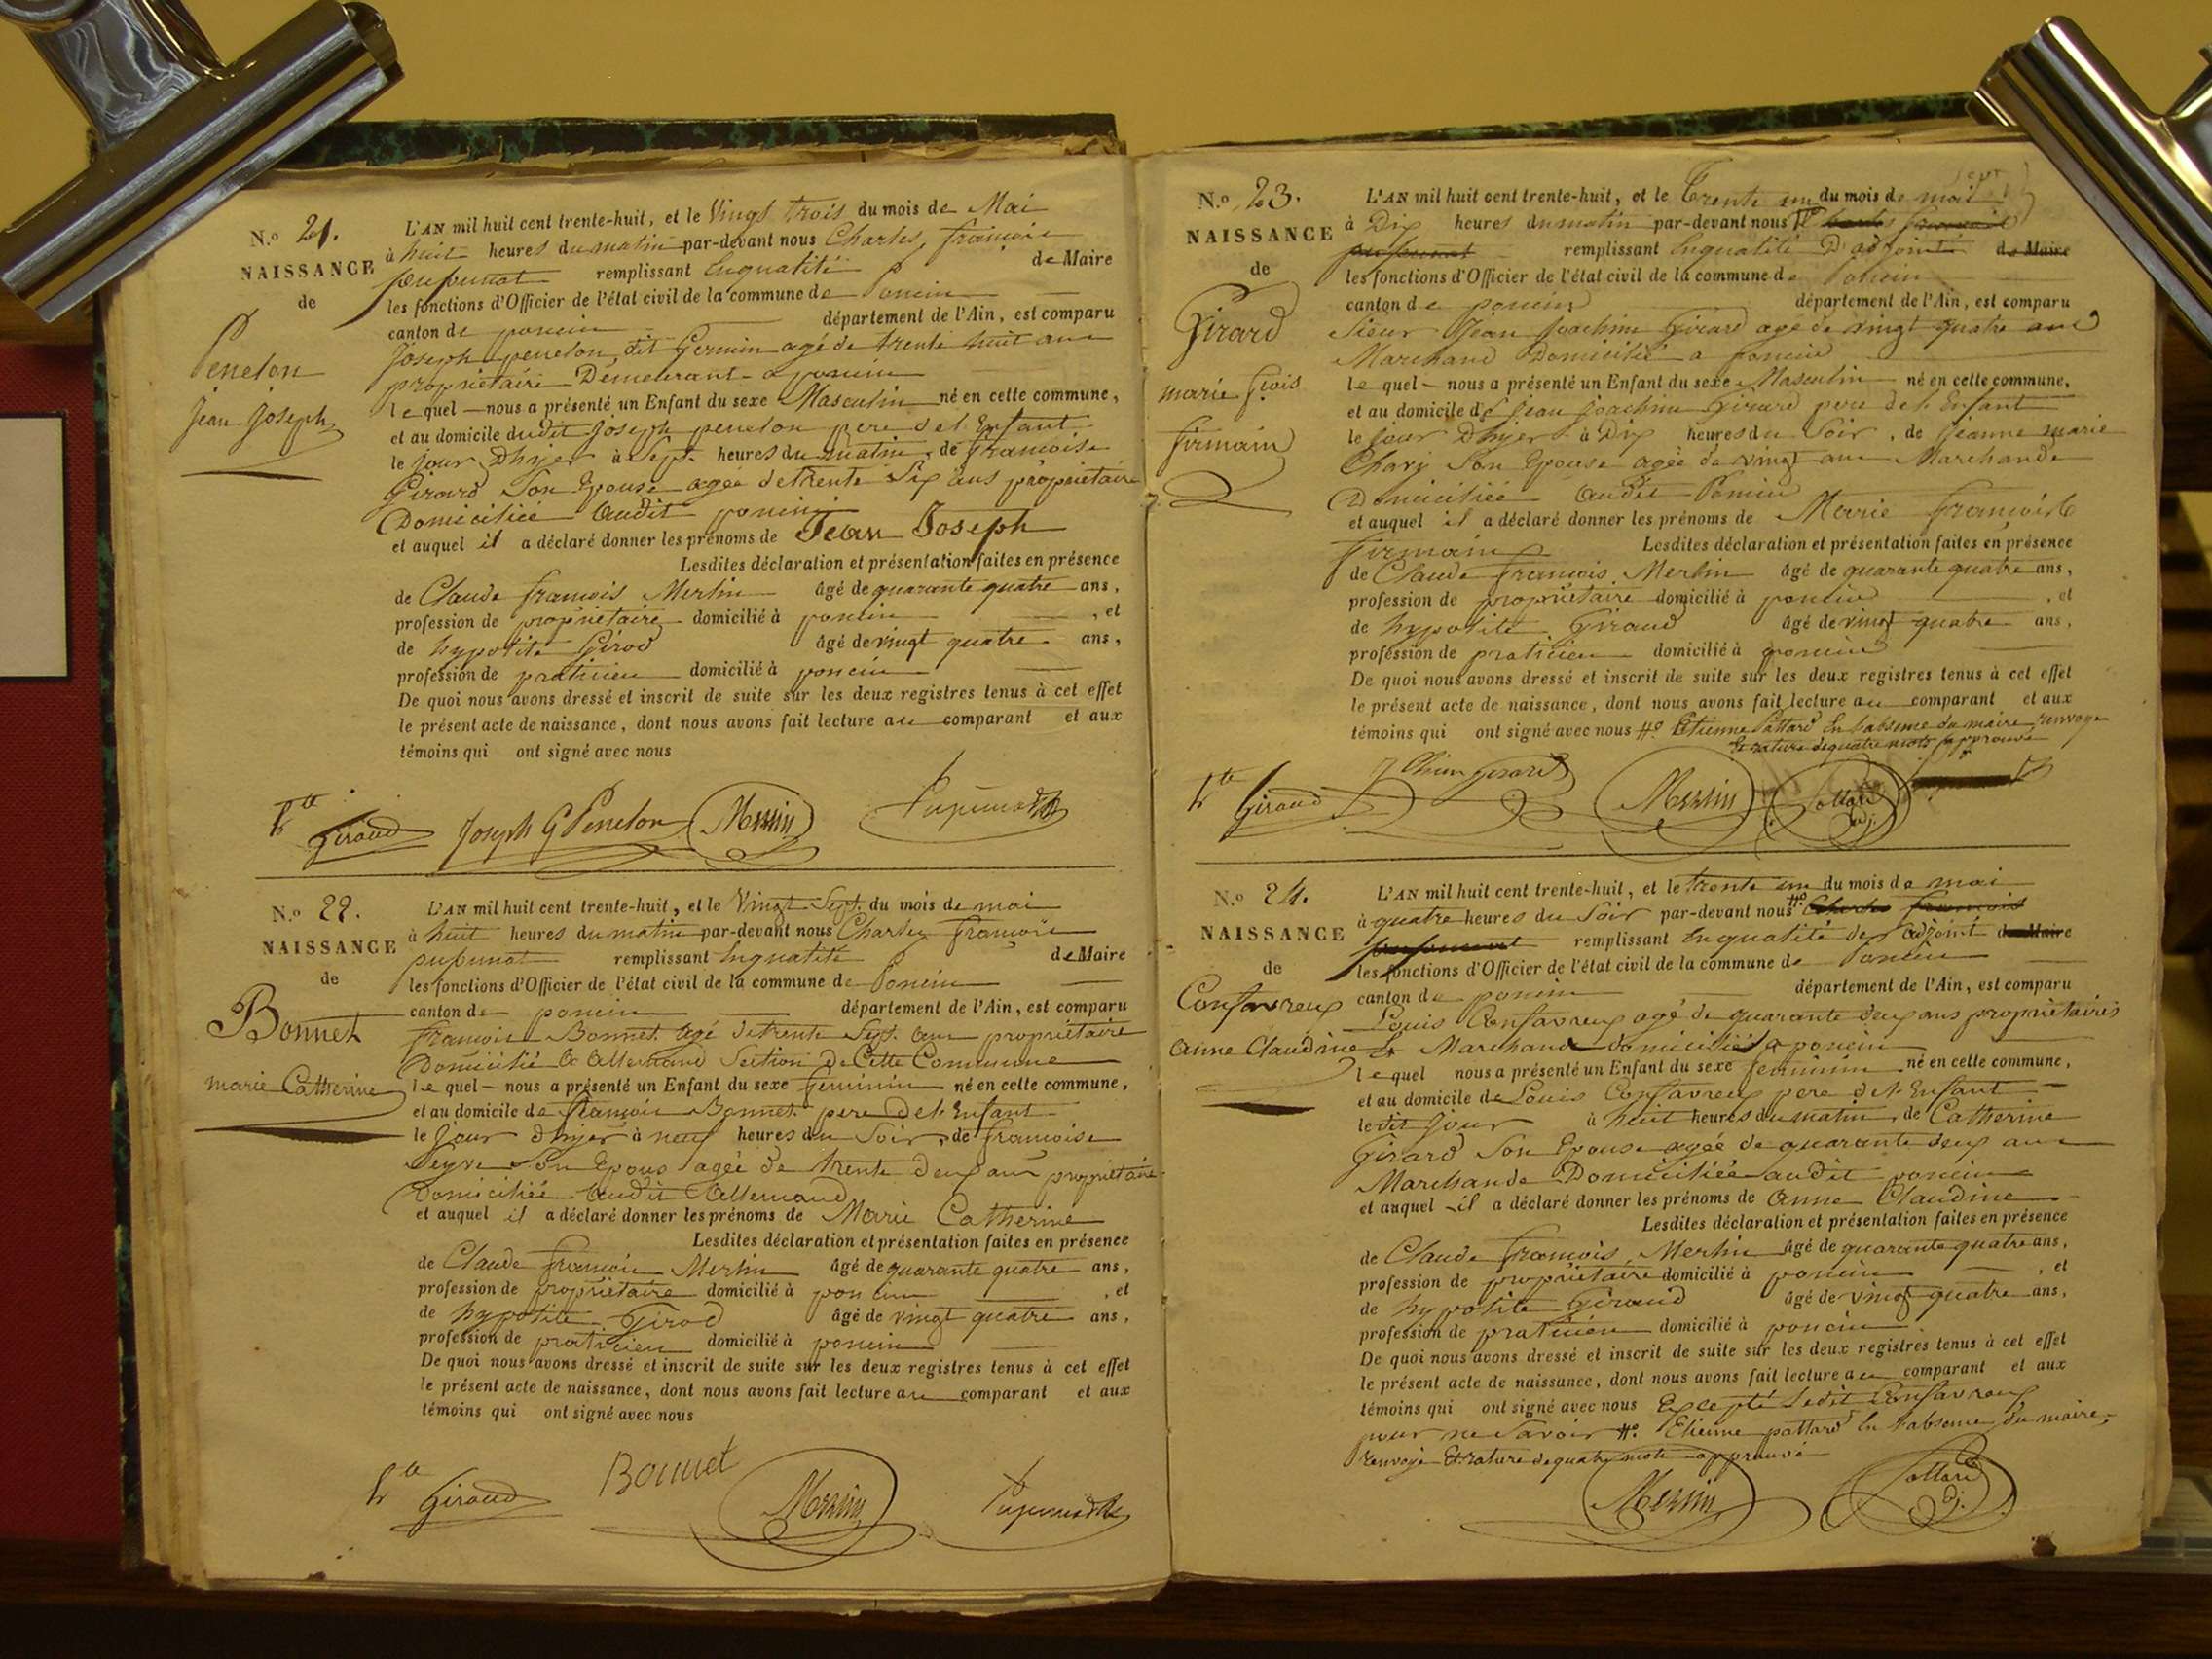 N.o 21.
NAISSANCE
de
Penelon
Jean Joseph
L'AN mil huit cent trente-huit, et le Vingt trois du mois de Mai
à huit heures du matin par-devant nous Charles, françois
pupunat remplissant Enqualité de Maire
les fonctions d'Officier de l'état civil de la commune de Poncin
canton de poncin département de l'Ain, est comparu
Joseph penelon, dit Germin agé de trente huit ans
propriétaire Demeurant a poncin
lequel nous a présenté un Enfant du sexe Masculin né en cette commune,
et au domicile dudit Joseph penelon pere de l'Enfant
le jour D'hyer à Sept heures du matin, de françoise
Girard Son Epouse agée de trente Six ans propriétaire
Domiciliée audit poncin
et auquel il a déclaré donner les prénoms de Jean Joseph
Lesdites déclaration et présentation faites en présence
de Claude françois Merlin âgé de quarante quatre ans,
profession de propriétaire domicilié à poncin , et
de hypolite Girod âgé de vingt quatre ans,
profession de praticien domicilié à poncin
De quoi nous avons dressé et inscrit de suite sur les deux registres tenus à cet effet
le présent acte de naissance, dont nous avons fait lecture au comparant et aux
témoins qui ont signé avec nous
hte Giraud Joseph G Penelon Merlin Pupunat
N.o 22.
NAISSANCE
de
Bonnet
marie Catherine
L'AN mil huit cent trente-huit, et le Vingt Sept du mois de mai
à huit heures du matin par-devant nous Charles françois
pupunat remplissant Enqualité de Maire
les fonctions d'Officier de l'état civil de la commune de Poncin
canton de poncin département de l'Ain, est comparu
françois Bonnet agé de trente Sept ans propriétaire
Domicilié a Allemand Section De Cette Commune
lequel nous a présenté un Enfant du sexe feminin né en cette commune,
et au domicile de françois Bonnet pere De l'Enfant
le jour d'hyer à neuf heures du Soir, de françoise
Son Epouse agée de trente deux ans propriétaire
Domiciliée audit Allemand
et auquel il a déclaré donner les prénoms de Marie Catherine
Lesdites déclaration et présentation faites en présence
de Claude françois Merlin âgé de quarante quatre ans,
profession de propriétaire domicilié à poncin , et
de hypolite Girod âgé de vingt quatre ans,
profession de praticien domicilié à poncin
De quoi nous avons dressé et inscrit de suite sur les deux registres tenus à cet effet
le présent acte de naissance, dont nous avons fait lecture au comparant et aux
témoins qui ont signé avec nous
hte Giraud Bonnet Merlin Pupunat
N.o 23.
NAISSANCE
de
Girard
marie fçois
firmain
L'AN mil huit cent trente-huit, et le Trente un du mois de mai
à Dix heures du matin par-devant nous françois
pupunat remplissant Enqualité D'adjoint de Maire
les fonctions d'Officier de l'état civil de la commune de Poncin
canton de poncin département de l'Ain, est comparu
Sieur Jean Joachim Girard agé de vingt quatre ans
Marchand Domicilié a poncin
lequel nous a présenté un Enfant du sexe Masculin né en cette commune,
et au domicile de Jean Joachim Girard pere de l'Enfant
le jour D'hyer à Dix heures du Soir, de Jeanne marie
Son Epouse agée de vingt ans Marchande
Domiciliée audit Poncin
et auquel il a déclaré donner les prénoms de Marie françois
firmain Lesdites déclaration et présentation faites en présence
de Claude françois Merlin âgé de quarante quatre ans,
profession de propriétaire domicilié à poncin , et
de hypolite Giraud âgé de vingt quatre ans,
profession de praticien domicilié à poncin
De quoi nous avons dressé et inscrit de suite sur les deux registres tenus à cet effet
le présent acte de naissance, dont nous avons fait lecture au comparant et aux
témoins qui ont signé avec nous Etienne Pattard En l'absence du maire renvoye
Et rature de quatre mots approuvé
hte Giraud Girard Merlin Pattard adj.
N.o 24.
NAISSANCE
de
Confavreux
anne Claudine
L'AN mil huit cent trente-huit, et le trente un du mois de mai
à quatre heures du Soir par-devant nous Charles françois
pupunat remplissant Enqualité de adjoint de Maire
les fonctions d'Officier de l'état civil de la commune de Poncin
canton de poncin département de l'Ain, est comparu
Louis Confavreux agé de quarante deux ans propriétaires
Et Marchand domicilié a poncin
lequel nous a présenté un Enfant du sexe feminin né en cette commune,
et au domicile de Louis Confavreux pere de l'Enfant
ledit jour à huit heures du matin, de Catherine
Girard Son Epouse agée de quarante deux ans
Marchande Domiciliée audit poncin
et auquel il a déclaré donner les prénoms de anne Claudine
Lesdites déclaration et présentation faites en présence
de Claude françois Merlin âgé de quarante quatre ans,
profession de propriétaire domicilié à poncin , et
de hypolite Giraud âgé de vingt quatre ans,
profession de praticien domicilié à poncin
De quoi nous avons dressé et inscrit de suite sur les deux registres tenus à cet effet
le présent acte de naissance, dont nous avons fait lecture au comparant et aux
témoins qui ont signé avec nous Excepté ledit Confavreux
pour ne Savoir Etienne pattard En l'absence du maire,
renvoye Et rature de quatre mots approuvé
Merlin Pattard adj.